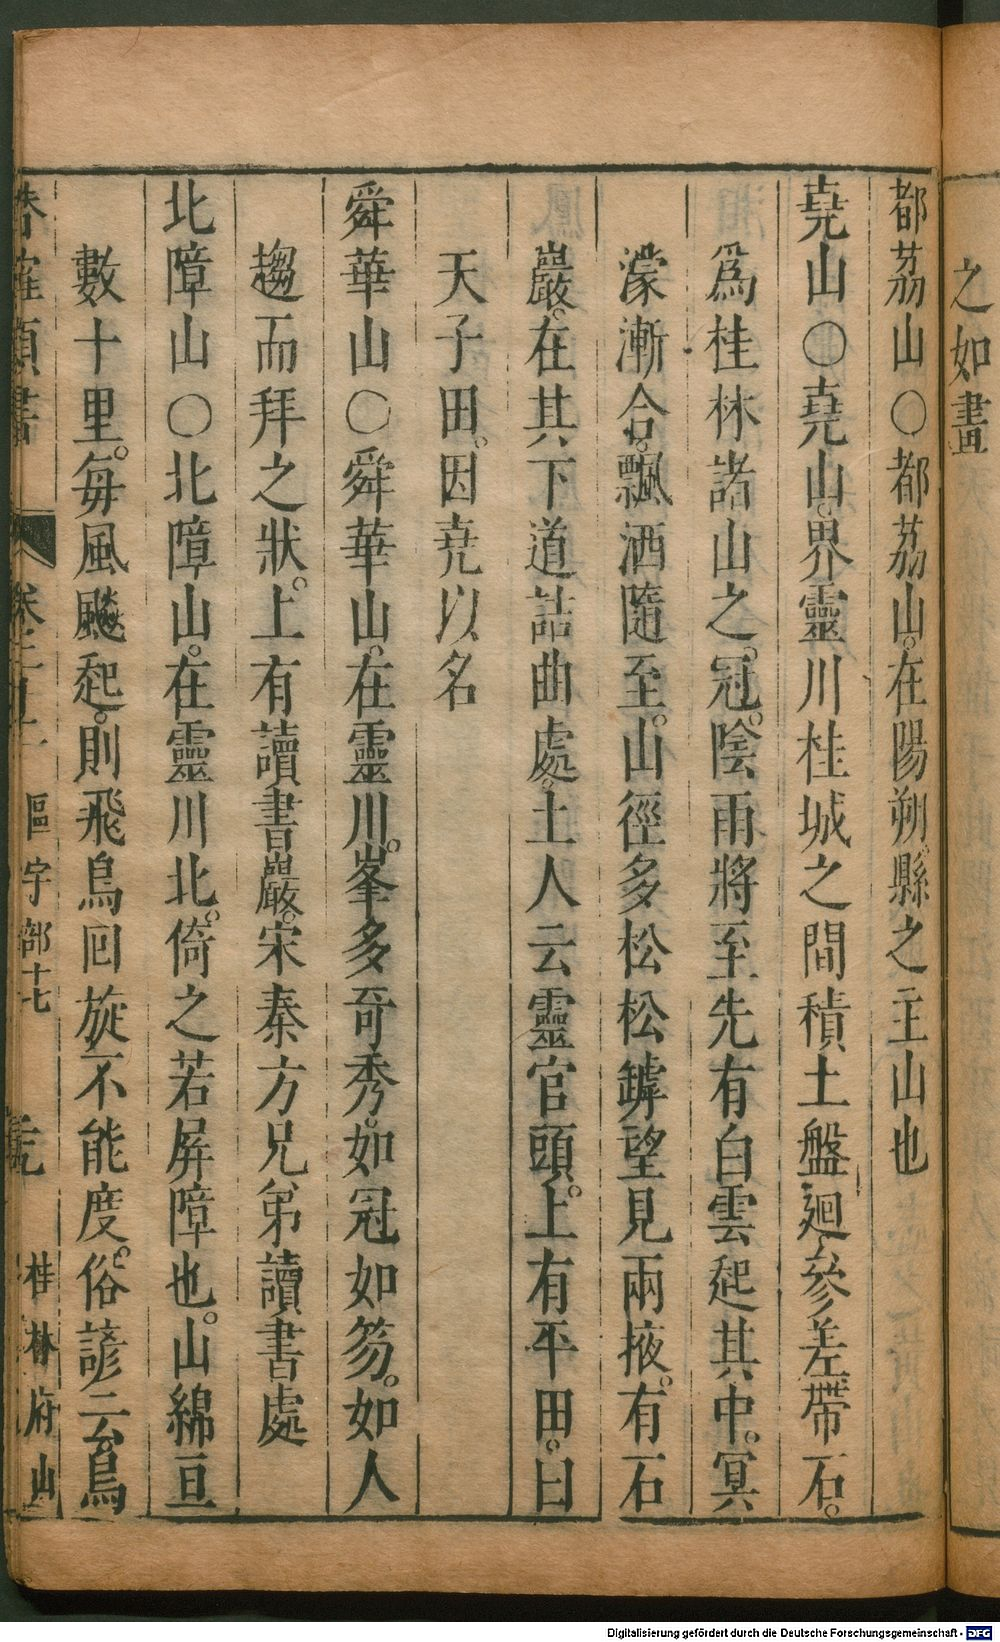 之如畫
都茘山〇都茘山。在陽朔縣之主山也
堯山〇堯山。界靈川桂城之間積土盤廻。參差帶石。
爲桂林諸山之。冠。陰雨將至先有白雲起其中。冥
濛漸合。飄洒隨至。山徑多松松罅望見兩掖。有石
巖。在其下道詰曲處。土人云靈官頭。上有平田。曰
天子田。因堯以名
舜華山〇舜華山。在靈川。峯多奇秀。如冠如笏。如人
趨而拜之狀。上有讀書巖。宋秦方兄弟讀書處
北障山〇北障山。在靈川北。倚之若屏障也。山綿亘
數十里。每風飈起。則飛鳥回旋不能度。俗諺云鳥
區宇部十七
桂林府山
Digitalisierung gefördert durch die Deutsche Forschungsgemeinschaft - DFG